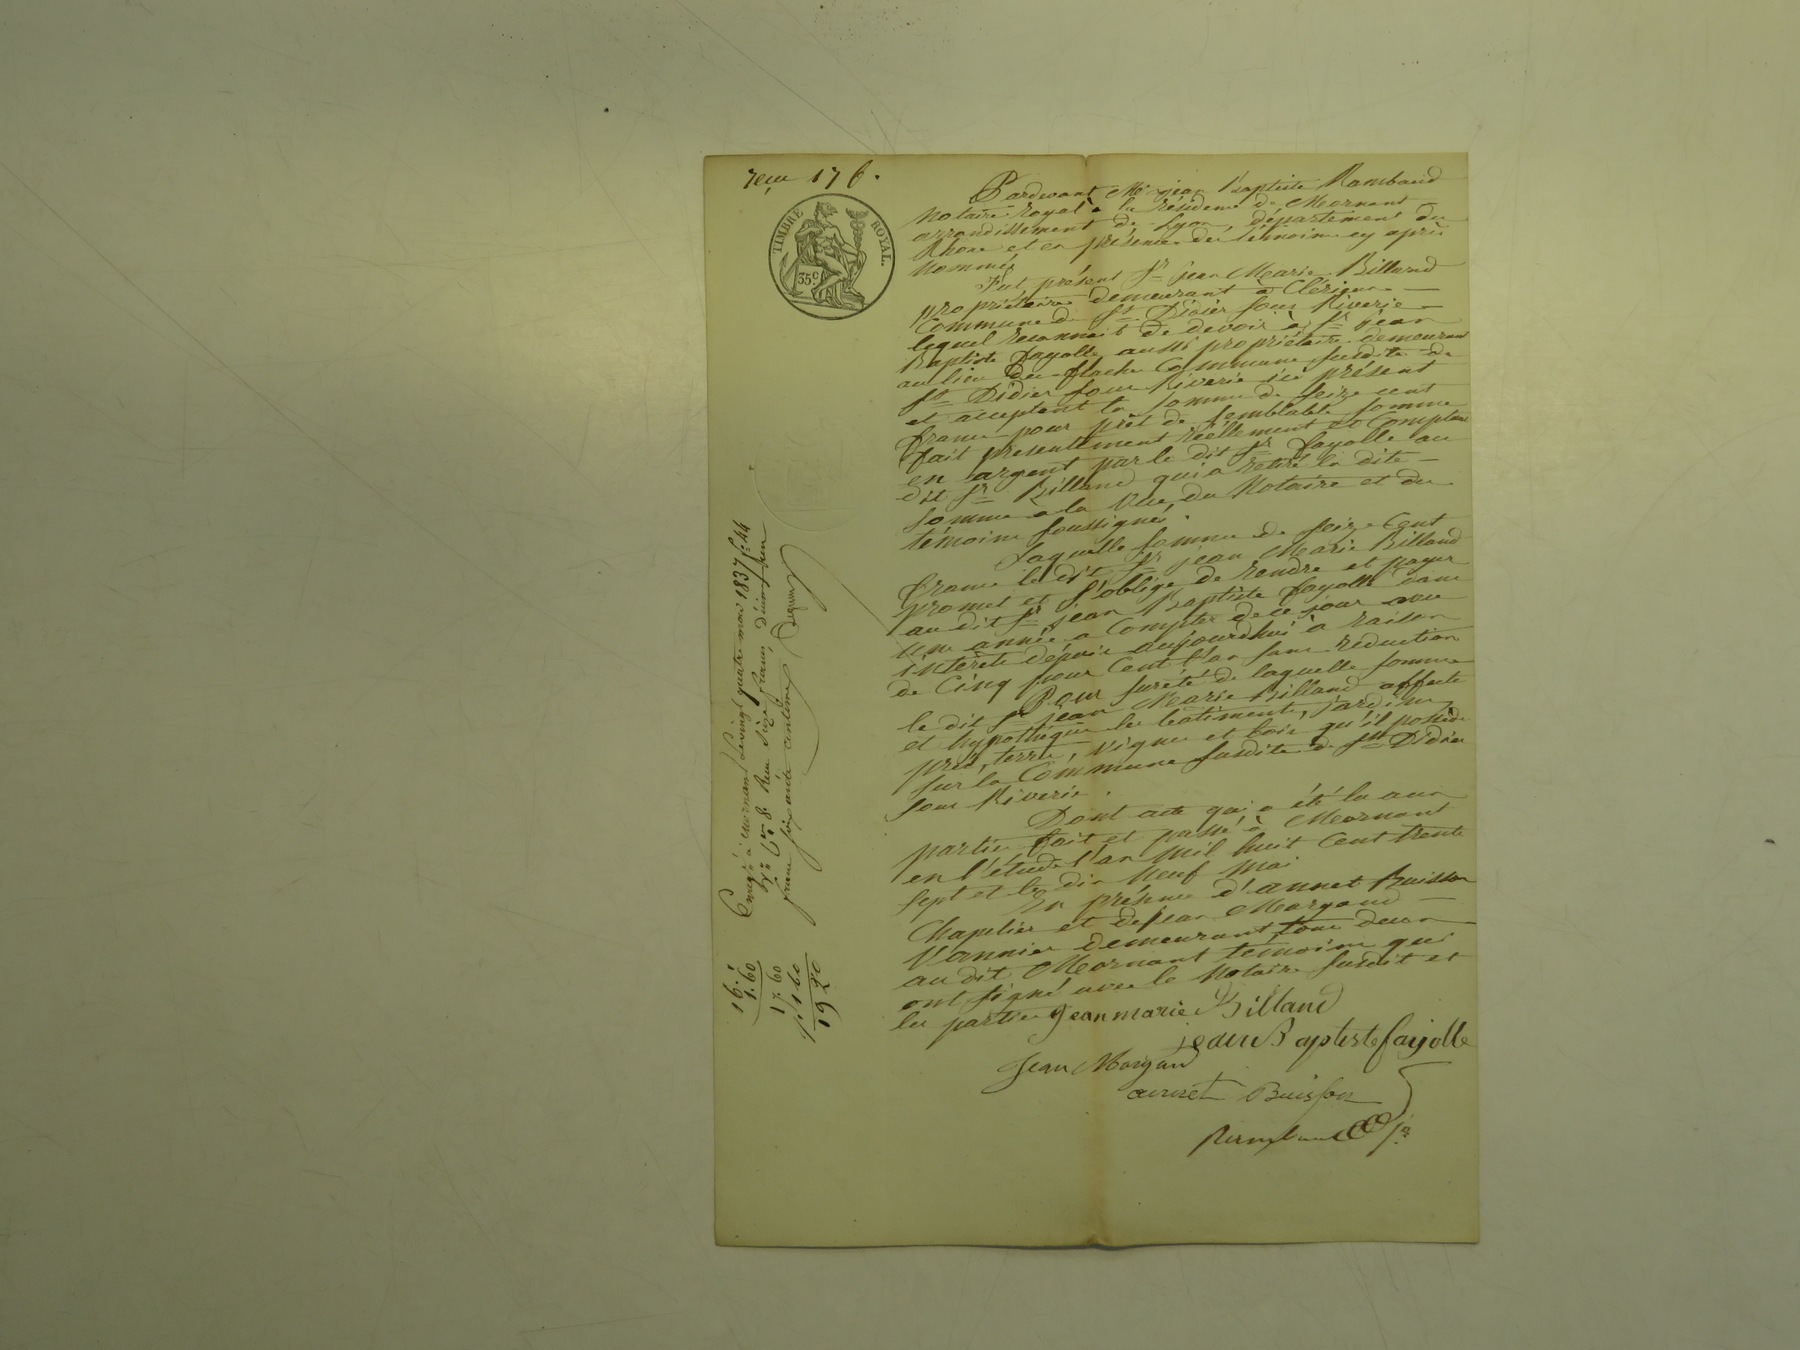 reçu 176.
TIMBRE ROYAL.
35 c.
Pardevant Me jean Baptiste Rambaud
Notaire royal à la résidence de Mornant
arrondissement de Lyon département du
Rhone et en présence des témoins cy après
nommés
Fut présent Sr jean Marie Billand
propriétaire demeurant à
Commune de St Didier sous Riverie
lequel reconnait de devoir à Sr jean
Baptiste Fayolle aussi propriétaire demeurant
au lieu du commune susdite de
St Didier sous Riverie ici présent
et acceptant la somme de seize cent
francs pour prêt de semblable somme
fait présentement réellement et comptant
en argent par le dit Sr fayolle au
dit Sr Billand qui a retiré la dite
somme à la vue du Notaire et des
témoins soussignés.
Laquelle somme de seize cent
francs le dit Sr jean Marie Billand
promet et s'oblige de rendre et payer
au dit Sr jean Baptiste fayolle dans
une année a compter de ce jour avec
intérêts depuis aujourdhui à raison
de Cinq pour Cent l'an sans réduction
Pour sureté de laquelle somme
le dit Sr jean Marie Billand affecte
et hypothèque les batiments, jardins,
prés, terres, vignes et bois qu'il possède
sur la Commune susdite de St Didier
sous Riverie.
Dont acte qui a été lu aux
parties fait et passé à Mornant
en l'étude l'an mil huit cent trente
sept et le dix neuf mai
En présence d'annet Buisson
Chapelier et de jean Morgand
Vannier demeurant tous deux
au dit Mornant témoins qui
ont signé avec le Notaire susdit et
les parties
jean marie Billand
jean Baptiste fayolle
Jean Morgand
annet Buisson
Rambaud
Enregé à Mornant le vingt quatre mai 1837 fo 44
Vo Cse 8 Reçu seize francs
francs soixante centimes
16.
1.60
17.60
1.60
19.20